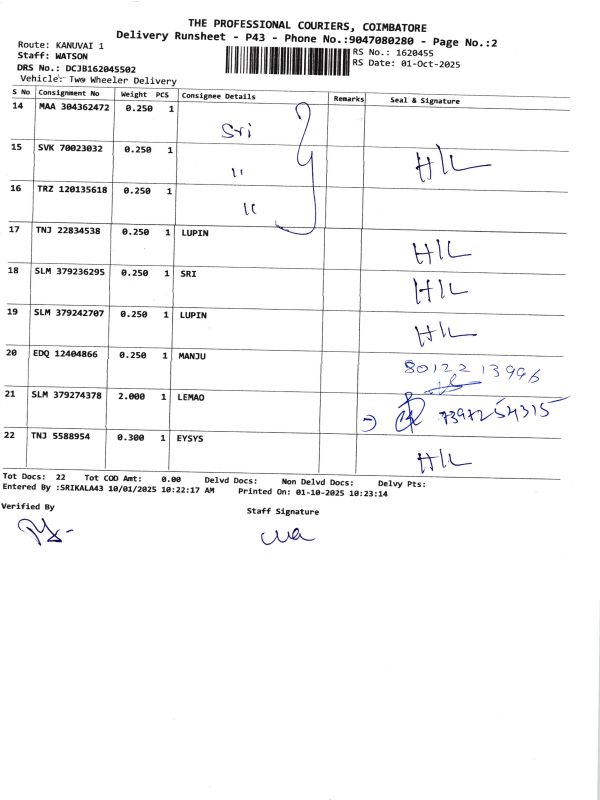 THE PROFESSIONAL COURIERS, COIMBATORE
Delivery Runsheet - P43 - Phone No.:9047080280 - Page No.:2
Route: KANUVAI 1
Staff: WATSON
DRS No.: DCJB162045502
Vehicle: Two Wheeler Delivery
RS No.: 1620455
RS Date: 01-Oct-2025
S No Consignment No Weight PCS Consignee Details Remarks Seal & Signature
14 MAA 304362472 0.250 1 Sri
15 SVK 70023032 0.250 1 " H/L
16 TRZ 120135618 0.250 1 "
17 TNJ 22834538 0.250 1 LUPIN H/L
18 SLM 379236295 0.250 1 SRI H/L
19 SLM 379242707 0.250 1 LUPIN H/L
20 EDQ 12404866 0.250 1 MANJU 80122 13996
21 SLM 379274378 2.000 1 LEMAO 7397254315
22 TNJ 5588954 0.300 1 EYSYS H/L
Tot Docs: 22 Tot COD Amt: 0.00 Delvd Docs: Non Delvd Docs: Delvy Pts:
Entered By :SRIKALA43 10/01/2025 10:22:17 AM Printed On: 01-10-2025 10:23:14
Verified By
Staff Signature